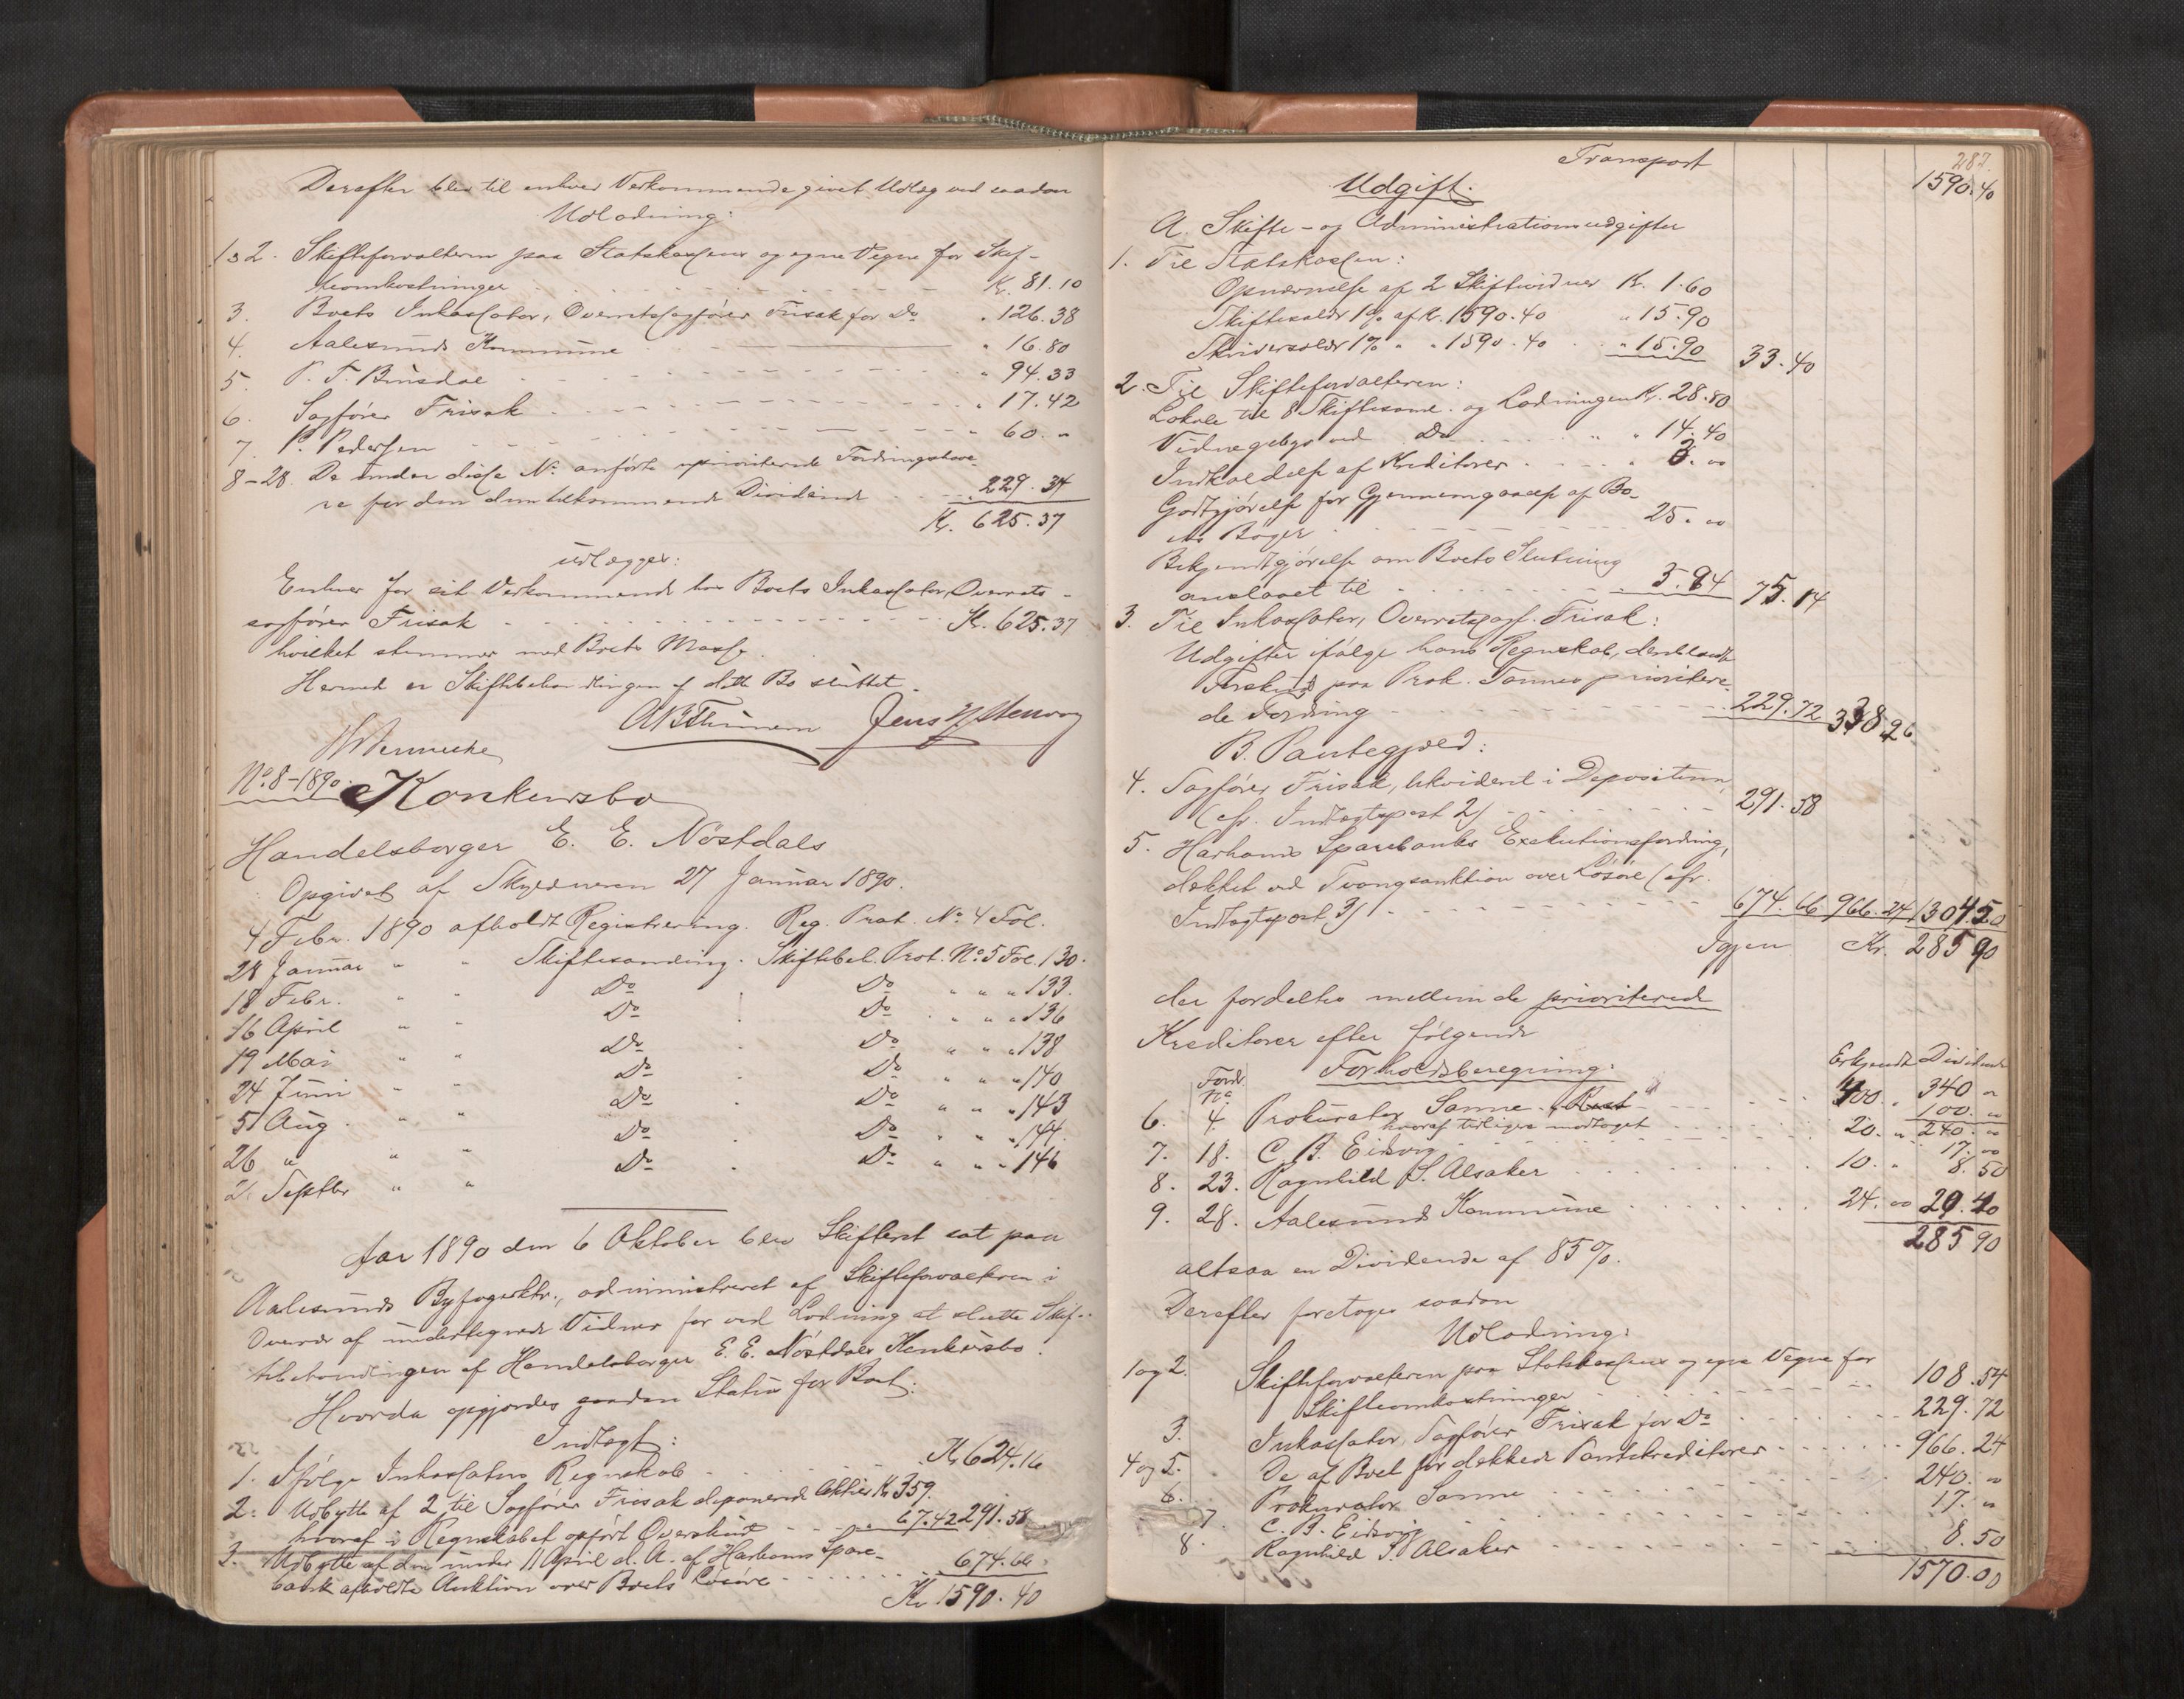 Derefter blev til enhver Vedkommende givet Udlæg ved saadan
Udlodning:
1 & 2. Skifteforvalteren paa Statskassens og egne Vegne for Skif-
teomkostninger Kr. 81.10
3. Boets Inkassator, Overretssagfører Frisak for Do " 126.38
4. Aalesunds Kommune " 16.80
5. P. T. Brusdal " 94.33
6. Sagfører Frisak " 17.42
7. P. Pedersen " 60. "
8-28. De under disse No anførte uprioriterede Fordringshave-
re for den dem tilkommende Dividende 229.34
Kr. 625.37
udlægges:
Enhver for sit Vedkommende hos Boets Inkassator, Overrets-
sagfører Frisak Kr. 625.37
hvilket stemmer med Boets Masse.
Hermed er Skiftebehandlingen af dette Bo sluttet.
No. 8-1890. Konkursbo
Handelsborger E. E. Nöstdals
Opgivet af Skyldneren 27 Januar 1890.
4 Febr. 1890 afholdt Registrering. Reg. Prot. No. 4 Fol.
28 Januar " " Skiftesamling. Skiftebeh. Prot. No. 5 Fol. 130.
18 Febr. " " Do . Do " " " 133.
16 April " " Do . Do " " " 136
19 Mai " " Do . Do " " " 138
24 Juni " " Do . Do " " " 140
5 Aug. " " Do . Do " " " 143
26 " " " Do . Do " " " 144.
2. Septbr " " Do . Do " " " 146
Aar 1890 den 6 Oktober blev Skifteret sat paa
Aalesunds Byfogedktr., administreret af Skifteforvalteren i
Overvær af undertegnede Vidner for ved Lodning at slutte Skif-
tebehandlingen af Handelsborger E. E. Nöstdals Konkursbo.
Hvorda opgjordes saadan Status for Boet:
Indtægt:
1. Ifølge Inkassators Regnskab Kr 624.16
2. Udbytte af 2 til Sagfører Frisak deponerede Aktier Kr 359.
hvoraf i Regnskabet opført Overskud " 67.42 291.58
3. Udbytte af den under 11 April d. A. af Harhams Spare-
bank afholdte Auktion over Boets Løsøre 674.66
Kr 1590.40
282.
Transport 1590.40
Udgift:
A. Skifte- og Administrationsudgifter
1. Til Statskassen:
Opnævnelse af 2 Skiftevidner Kr. 1.60
Skiftesalær 1% af Kr. 1590.40 " 15.90
Skriversalær 1% " " 1590.40 " 15.90 33.40
2. Til Skifteforvalteren:
Lokale til 8 Skiftesaml. og Lodningen Kr. 28.80
Vidnegebyr ved Do " " 14.40
Indkaldelse af Kreditorer " 3. "
Godtgjørelse for Gjennemgaaelse af Bo-
ets Bøger 25. "
Bekjendtgjørelse om Boets Slutning
anslaaet til 3.84 75.14
3. Til Inkassator, Overretssagf. Frisak:
Udgifter ifølge hans Regnskab, deriblandt
Forskud paa Prok. Sannes prioritere-
de Fordring 229.72 338.26
B. Pantegjæld:
4. Sagfører Frisak, likvideret i Depositum,
(cfr. Indtægtspost 2) 291.58
5. Harhams Sparebanks Exekutionsfordring,
dækket ved Tvangsauktion over Løsøre (cfr.
Indtægtspost 3) 674.66 966.24 1304.50
Igjen Kr. 285 90
der fordeltes mellem de prioriterede
Kreditorer efter følgende
Forholdsberegning:
Fordr. No Erkjendt Dividende
6. 4. Prokurator Sanne 400. " 340 "
hvoraf tidligere modtaget 100. "
240. "
7. 18. C. B. Eidsvig 20. " 17. "
8. 23. Ragnhild S. Alsaker 10. " 8.50
9. 28. Aalesunds Kommune 24. " 20.40
285 90
altsaa en Dividende af 85%.
Derefter foretoges saadan
Udlodning:
1 og 2. Skifteforvalteren paa Statskassens og egne Vegne for
Skifteomkostninger 108.54
3. Inkassator, Sagfører Frisak for Do 229.72
4 og 5. De af Boet før dækkede Pantekreditorer 966.24
6. Prokurator Sanne 240. "
7. C. B. Eidsvig 17. "
8. Ragnhild S. Alsaker 8.50
1570.00